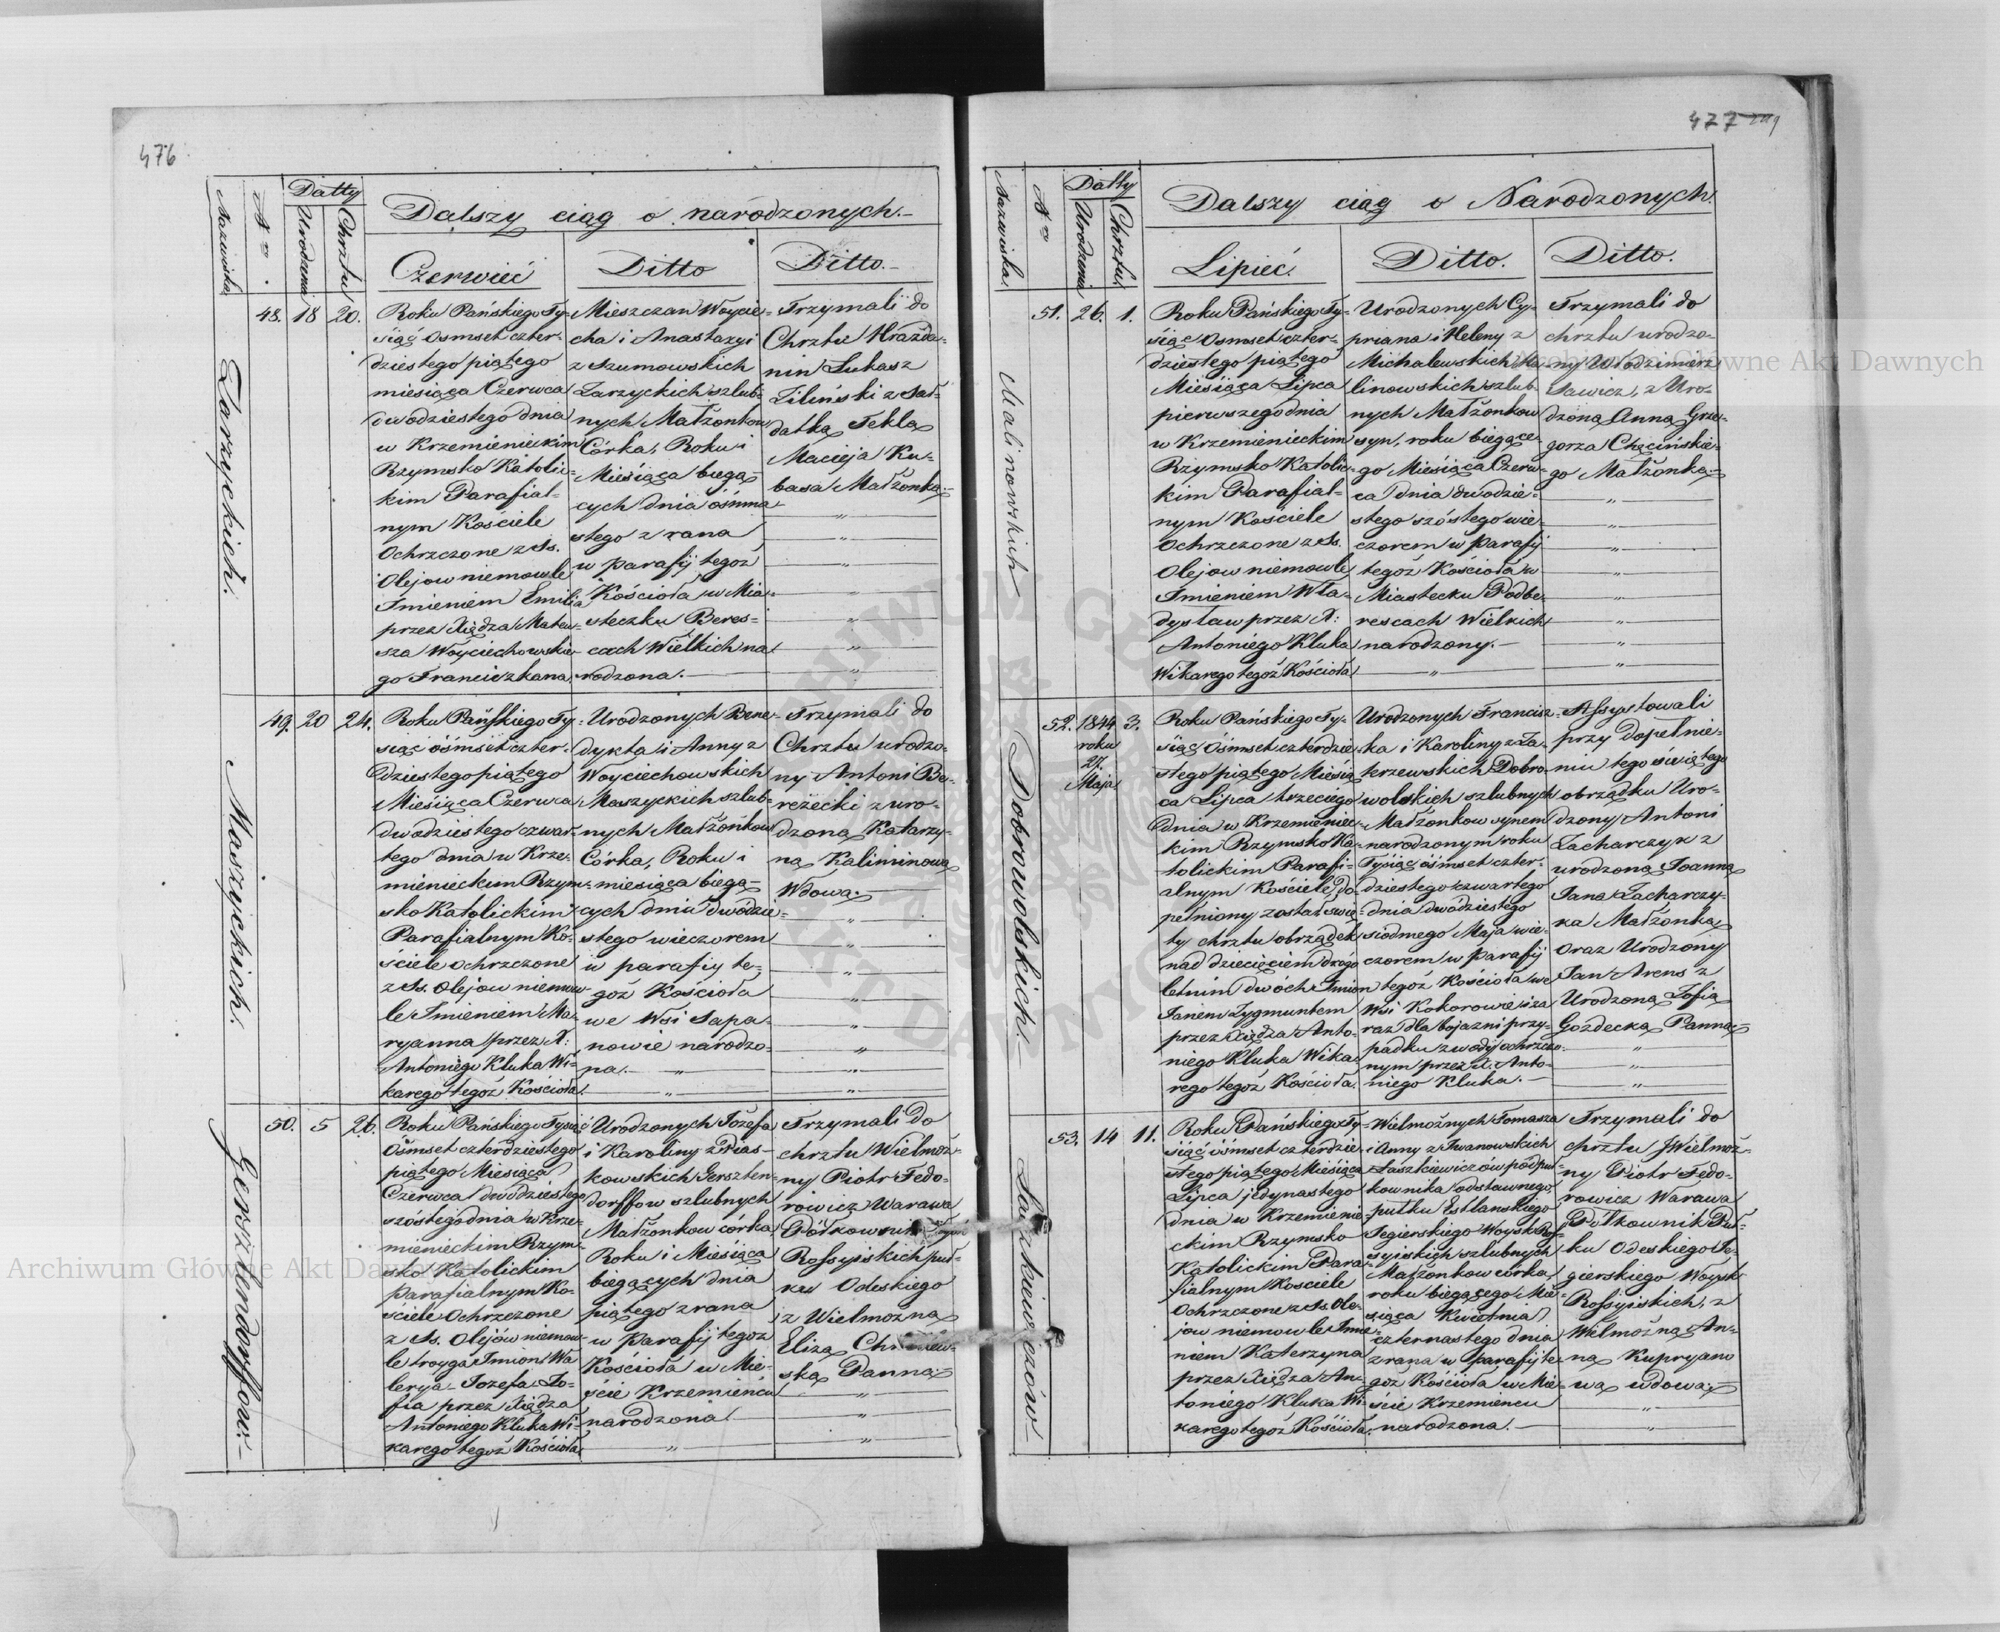 476
Datty
Dalszy ciąg o narodzonych.
Nazwiska
No.
Urodzenia
Chrztu
Czerwieć
Ditto
Ditto.
48. 18 20.
Zarzyckich.
Roku Pańskiego Ty-
siąć osmset czter-
dziestego piątego
miesiąca Czerwca
dwudziestego dnia
w Krzemienieckim
Rzymsko Katolic-
kim Parafial-
nym Kościele
Ochrzczone z Ss.
Olejow niemowle
Imieniem Emilia
przez Xiędza Mateu-
sza Woyciechowskie-
go Franciszkana.
Mieszczan Woycie-
cha i Anastazyi
z Szumowskich
Zarzyckich szlub-
nych Małżonkow
Córka, Roku i
Miesiąca biegą-
cych dnia ośmna-
stego z rana
w parafij tegoż
Kościoła w Mia-
steczku Beres-
cach Wielkich na-
rodzona.
Trzymali do
Chrztu Hrażda-
nin Łukasz
Ziliński z Soł-
datką Teklą
Macieja Ku-
basa Małżonką.
49. 20 24.
Maszyckich.
Roku Pańskiego Ty-
siąć ośmset czter-
dziestego piątego
Miesiąca Czerwca
dwudziestego czwar-
tego dnia w Krze-
mienieckim Rzym-
sko Katolickim
Parafialnym Ko-
sciele ochrzczone
z Ss. Olejow niemow-
le Imieniem Ma-
ryanna przez X:
Antoniego Kluka Wi-
karego tegoż Kościoła.
Urodzonych Bene-
dykta i Anny z
Woyciechowskich
Maszyckich szlub-
nych Małżonkow
Córka, Roku i
miesiąca biegą-
cych dnia dwódzie-
stego wieczorem
w parafiy te-
goż Kościoła
we Wsi Sapa-
nowie narodzo-
na.
Trzymali do
Chrztu urodzo-
ny Antoni Be-
reżecki z uro-
dzoną Katarzy-
ną Kaliminową
Wdową.
50. 5 26.
Gersztendorffow.
Roku Pańskiego Tysiąć
Ośmset czterdziestego
piątego Miesiąca
Czerwca dwudziestego
szóstego dnia w Krze-
mienieckim Rzym-
sko Katolickim
Parafialnym Ko-
ściele Ochrzczone
z Ss. Olejów niemow-
le troyga Imion Wa-
lerya Jozefa Zo-
fia przez Xiędza
Antoniego Kluka Wi-
karego tegoż Kościoła.
Urodzonych Józefa
i Karoliny z Pias-
kowskich Gersztен-
dorffow szlubnych
Małżonkow córka
Roku i Miesiąca
biegących dnia
piątego z rana
w Parafij tegoż
Kościoła w Mie-
ście Krzemieńcu
narodzona.
Trzymali do
chrztu Wielmoż-
ny Piotr Fedo-
rowicz Warawa
Rossyiskich puł-
ku Odeskiego
z Wielmożną
Elizą
ską Panną
477
Datty
Dalszy ciąg o Narodzonych.
Nazwiska
No
Urodzenia
Chrztu
Lipieć.
Ditto.
Ditto.
51. 26. 1.
Malinowskich
Roku Pańskiego Ty-
siąć Osmset czter-
dziestego piątego
Miesiąca Lipca
pierwszego dnia
w Krzemienieckim
Rzymsko Katolic-
kim Parafial-
nym Kościele
Ochrzczone z Ss.
Olejow niemowle
Imieniem Wła-
dysław przez X:
Antoniego Kluka
Wikarego tegoż Kościoła
Urodzonych Cy-
priana i Heleny z
Michalewskich Ma-
linowskich szlub-
nych Małżonkow
syn, roku biegące-
go Miesiąca Czerw-
ca dnia dwódzie-
stego szóstego wie-
czorem w Parafij
tegoż Kościoła w
Miastecku Podbe-
rescach Wielkich
narodzony.
Trzymali do
chrztu urodzo-
ny Włodzimierz
Sawicz, z Uro-
dzoną Anną Grze-
gorza Chęcińskie-
go Małżonką.
52. 1844 roku 27. Maja 3.
Dobrowolskich.
Roku Pańskiego Ty-
siąć Ośmset czterdzie-
stego piątego Miesią-
ca Lipca trzeciego
dnia w Krzemieniec-
kim Rzymsko Ka-
tolickim Parafi-
alnym Kościele do-
pełniony został świę-
ty chrztu obrządek
nad dziecięciem drógo
letnim dwóch Imion
Janem Zygmuntem
przez Xiędza Anto-
niego Kluka Wika-
rego tegoż Kościoła.
Urodzonych Francisz-
ka i Karoliny z Za-
krzewskich Dobro-
wolskich szlubnych
Małżonkow synem
narodzonym roku
Tysiąć ośmset czter-
dziestego czwartego
dnia dwódziestego
siodmego Maja wie-
czorem w Parafij
tegoż Kościoła we
Wsi Kokorowie, za-
raz dla bojaźni przy-
padku z wody ochrzczo-
nym przez X. Anto-
niego Kluka.
Assystowali
przy dopełnie-
niu tego świętego
obrządku Uro-
dzony Antoni
Zacharczyk z
urodzoną Joanną
Jana Zacharczy-
ka Małżonką
oraz Urodzony
Jan Arens z
Urodzoną Zofią
Gozdecką Panną
53. 14 11.
Łaszkiewiczów
Roku Pańskiego Ty-
siąć ośmset czterdzie-
stego piątego Miesiąca
Lipca jedynastego
dnia w Krzemienie-
ckim Rzymsko
Katolickim Para-
fialnym Kosciele
Ochrzczone z Ss. Ole-
jow niemowle Imie-
niem Katerzyna
przez Xiędza An-
toniego Kluka Wi-
karego tegoż Kościoła.
Wielmożnych Tomasza
i Anny z Iwanowskich
Łaszkiewiczów podpuł-
kownika odstawnego,
pułku Estlanskiego
Jegierskiego Woysk Ros-
syiskich szlubnych
Małżonkow córka,
roku biegącego Mie-
siąca Kwietnia
czternastego dnia
z rana w parafij te-
goż Kościoła w Mie-
ście Krzemiencu
narodzona.
Trzymali do
chrztu JWielmoż-
ny Piotr Fedo-
rowicz Warawa
Półkownik Puł-
ku Odeskiego Je-
gierskiego Woysk
Rossyiskich, z
Wielmożną An-
ną Kupryano
wą wdową.
Archiwum Główne Akt Dawnych
Archiwum Główne Akt Dawnych